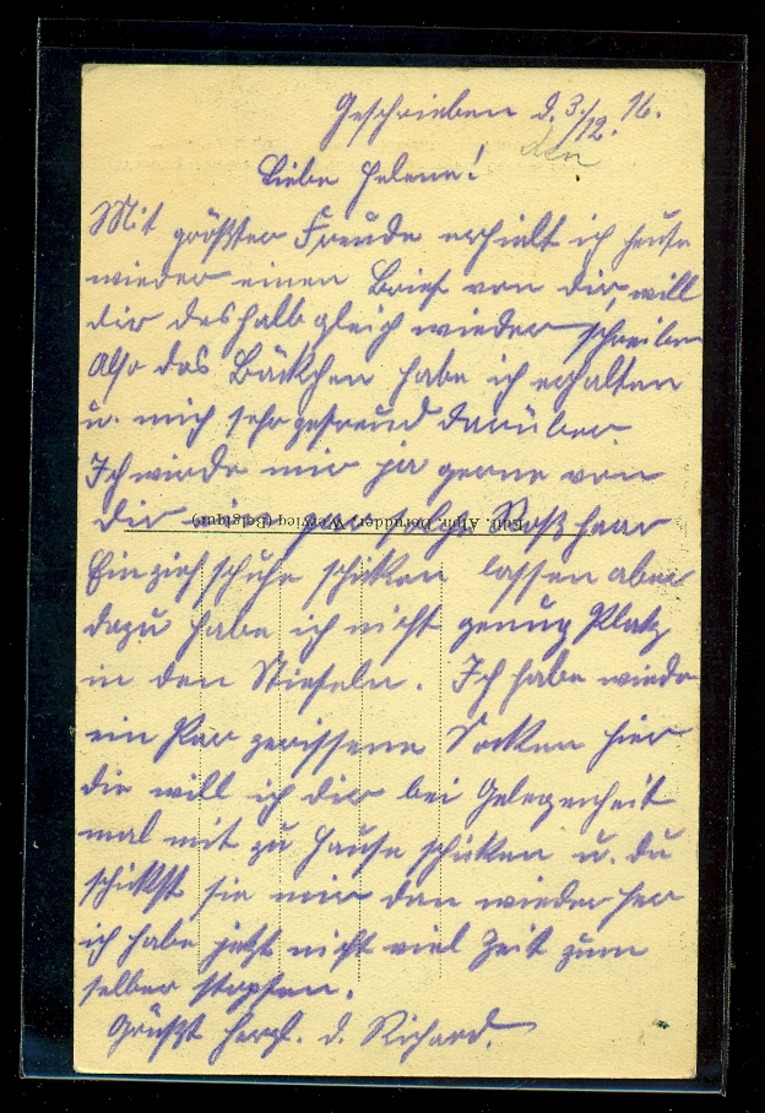 Geschrieben d. 3./12. 16.
den
Liebe Helene!
Mit größter Freude erhielt ich heute
wieder einen Brief von dir, will
dir deshalb gleich wieder schreiben
Also das Päckchen habe ich erhalten
u. mich sehr gefreud darüber.
Ich würde mir ja gerne von
dir ein par solche Roßhaar
Edit. Alph. Deraedder Wervicq (Belgique)
Einziehschuhe schicken lassen aber
dazu habe ich nicht genug Platz
in den Stiefeln. Ich habe wieder
ein Par zerissene Socken hier
die will ich dir bei Gelegenheit
mal mit zu Hause schicken u. du
schickst sie mir dan wieder her
ich habe jetzt nicht viel Zeit zum
selber stopfen.
Grüßt herzl. d. Richard.